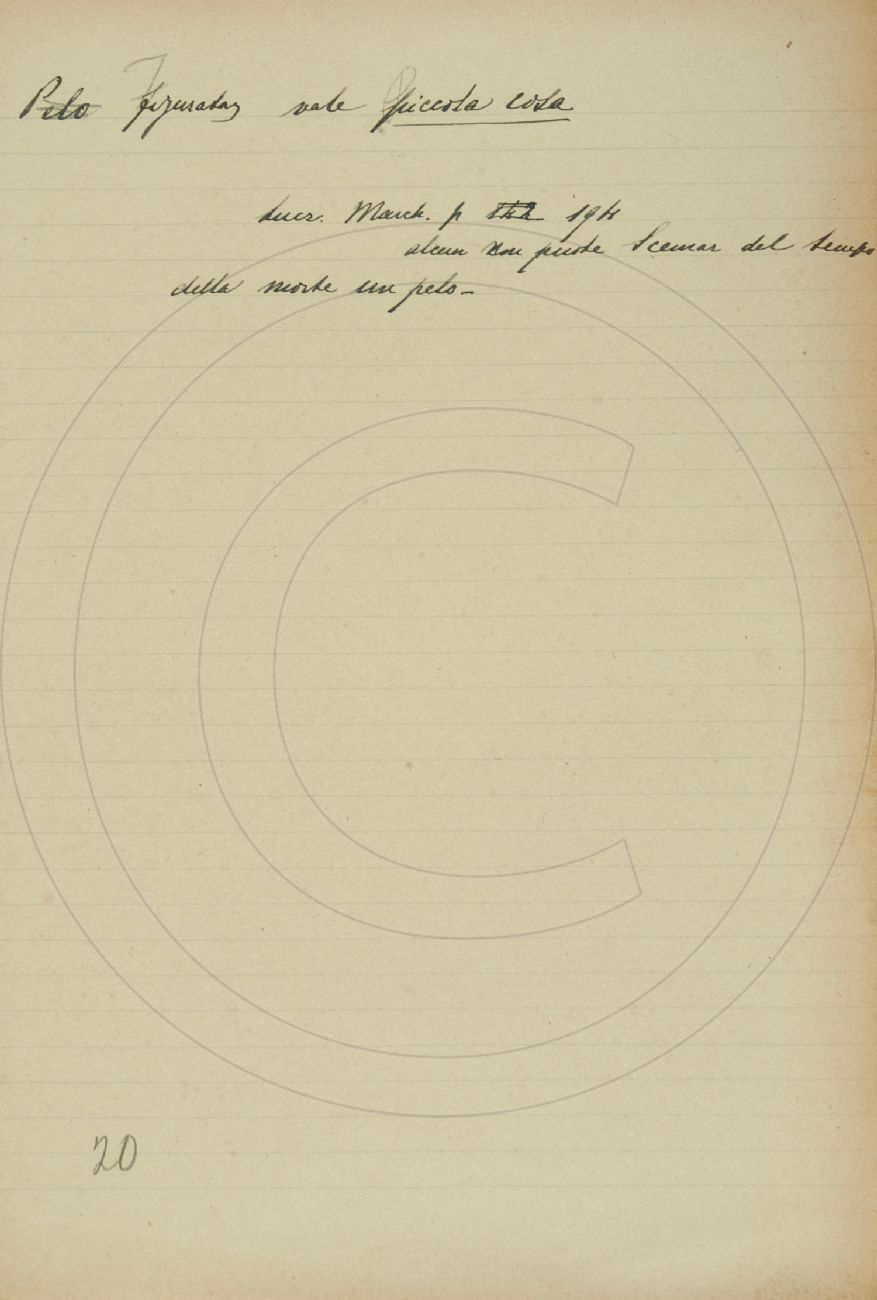 Pelo figuratam vale piccola cosa
Lucr. March. p 194
alcun non puote scemar del tempo
della morte un pelo_
20